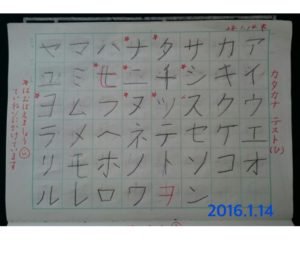 28.1.14 木
カタカナ テスト(ひ)
アイウエオ
カキクケコ
サシスセソン
タチツテトヲ
ナニヌネノワ
ハヒフヘホロ
マミムメモレ
ヤユヨラリル
＊はおぼえましょう
ていねいにかけています
2016.1.14